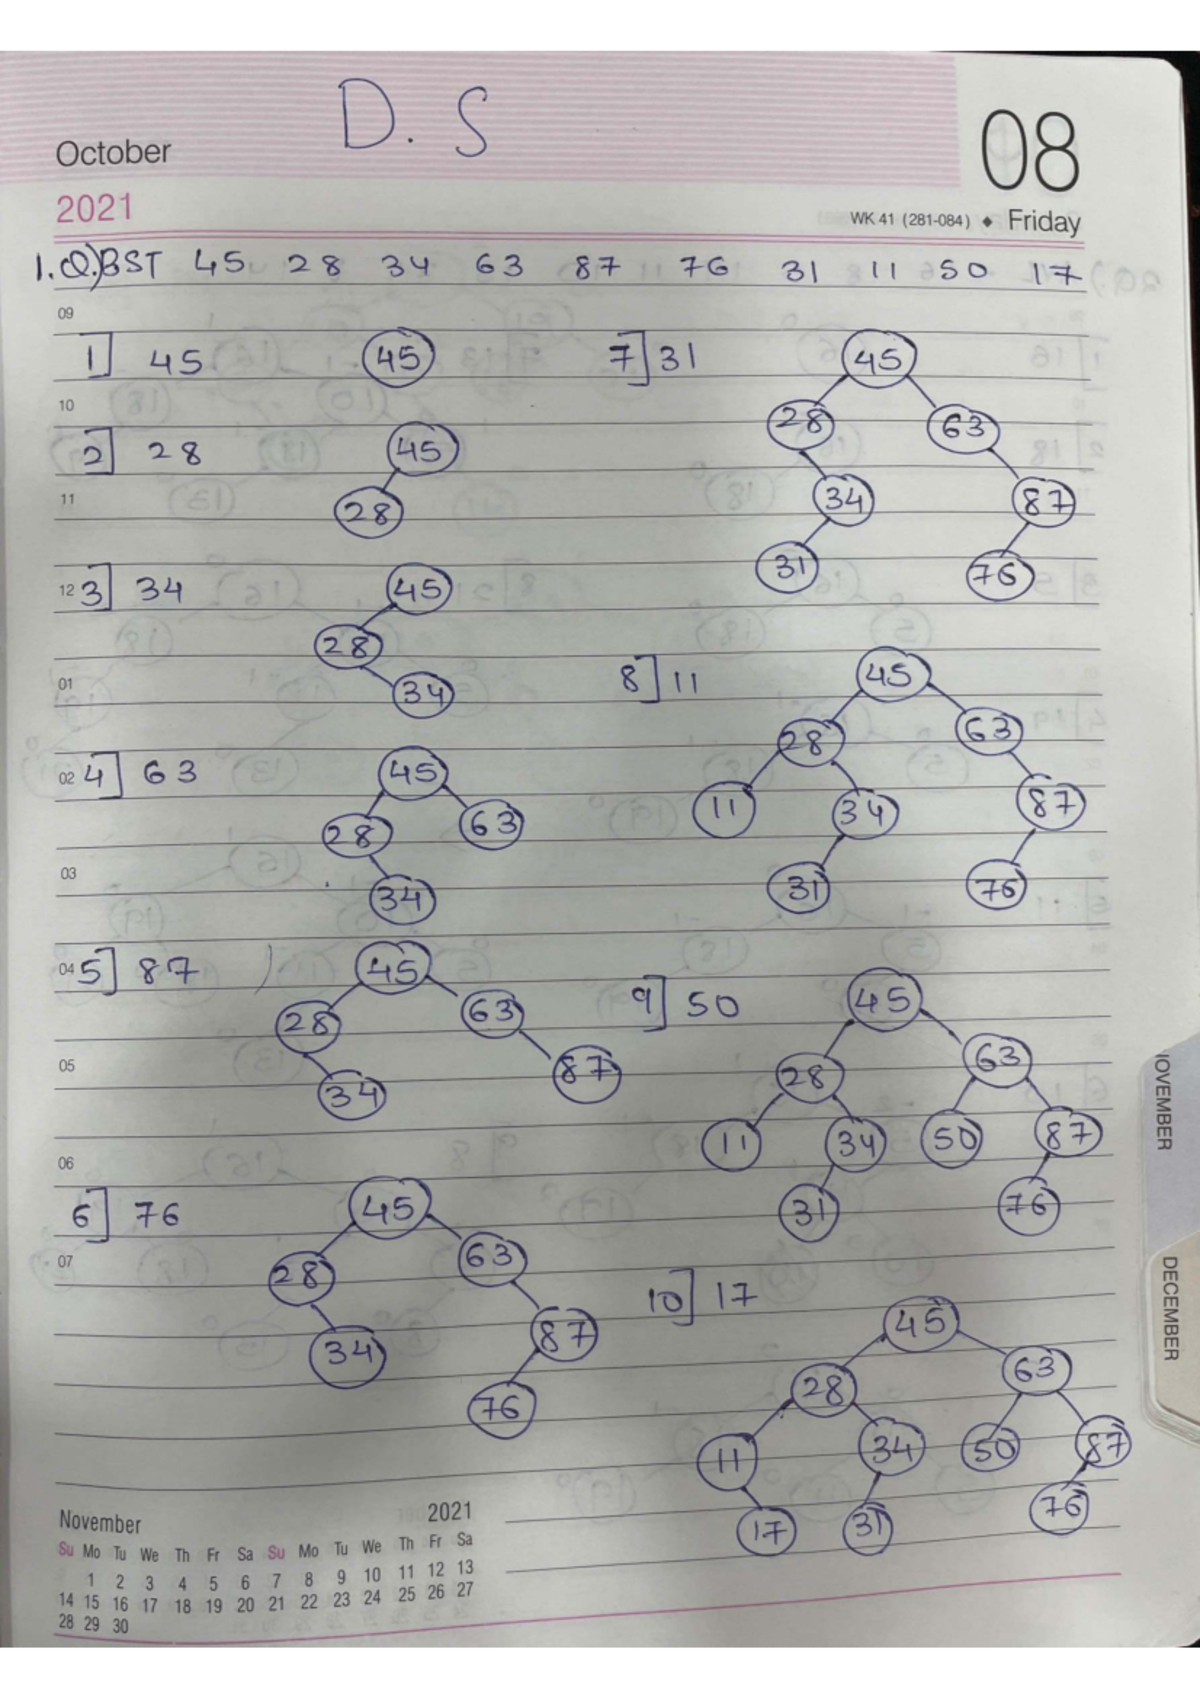 D. S
October
08
2021
WK 41 (281-084) ◆ Friday
1.Q.) BST 45 28 34 63 87 76 31 11 50 17
09
1] 45
45
10
2] 28
45
28
11
12
3] 34
45
28
34
01
02
4] 63
45
28 63
34
03
04
5] 87
45
28 63
34 87
05
06
6] 76
45
28 63
34 87
76
07
7] 31
45
28 63
34 87
31 76
8] 11
45
28 63
11 34 87
31 76
9] 50
45
28 63
11 34 50 87
31 76
10] 17
45
28 63
11 34 50 87
17 31 76
NOVEMBER
DECEMBER
November 2021
Su Mo Tu We Th Fr Sa Su Mo Tu We Th Fr Sa
1 2 3 4 5 6 7 8 9 10 11 12 13
14 15 16 17 18 19 20 21 22 23 24 25 26 27
28 29 30